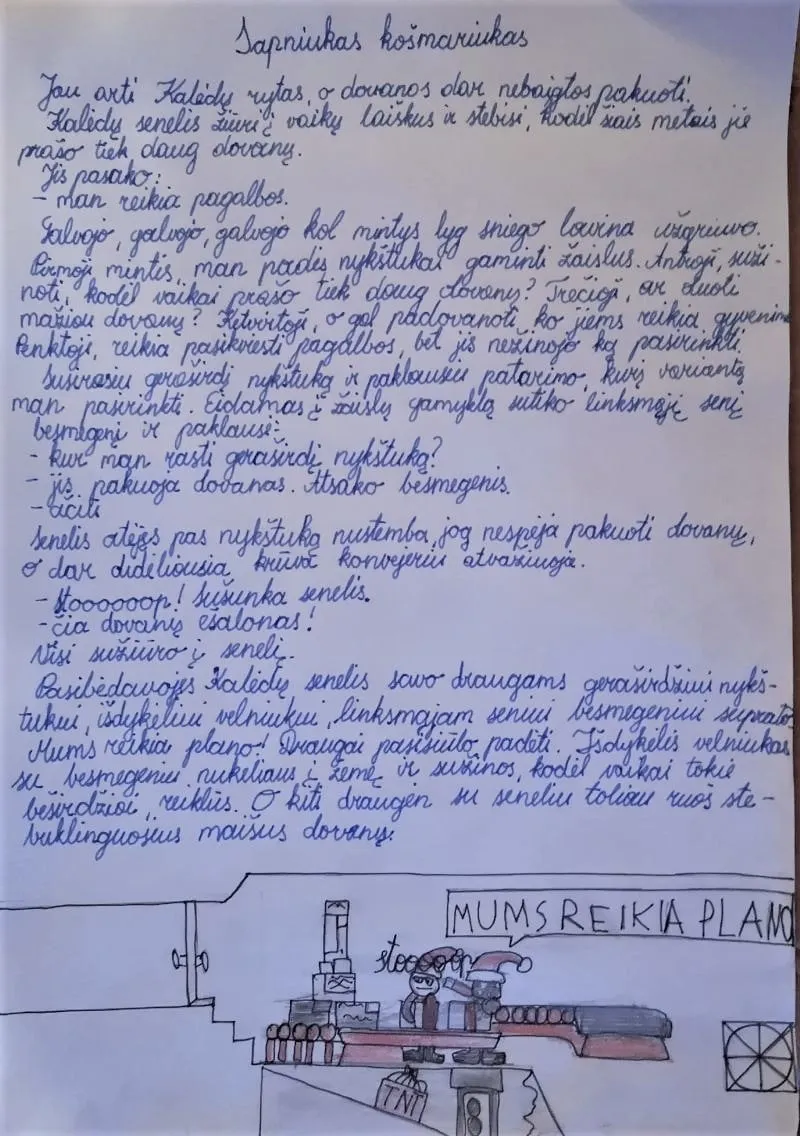 Sapniukas košmariukas
Jau arti Kalėdų rytas, o dovanos dar nebaigtos pakuoti.
Kalėdų senelis žiūri į vaikų laiškus ir stebisi, kodėl šiais metais jie
prašo tiek daug dovanų.
Jis pasako:
- man reikia pagalbos.
Galvojo, galvojo, galvojo kol mintys lyg sniego lavina užgriuvo.
Pirmoji mintis, man padės nykštukai gaminti žaislus. Antroji, suži-
noti, kodėl vaikai prašo tiek daug dovanų? Trečioji, ar duoti
mažiau dovanų? Ketvirtoji, o gal padovanoti, ko jiems reikia gyvenime
Penktoji, reikia pasikviesti pagalbos, bet jis nežinojo ką pasirinkti.
Susirasiu geraširdį nykštuką ir paklausiu patarimo, kurį variantą
man pasirinkti. Eidamas į žaislų gamyklą sutiko linksmąjį senį
besmegenį ir paklausė:
- kur man rasti geraširdį nykštuką?
- jis pakuoja dovanas. Atsako besmegenis.
- ačiū
Senelis atėjęs pas nykštuką nustemba, jog nespėja pakuoti dovanų,
o dar didėliausia krūva konvejeriu atvažiuoja.
- stoooooop! Sušunka senelis.
- čia dovanų ešalonas!
Visi sužiūro į senelį.
Pasibėdavojęs Kalėdų senelis savo draugams geraširdžiui nykš-
tukui, išdykėliui velniukui, linksmajam seniui besmegeniui suprato
Mums reikia plano! Draugai pasisiūlo padėti. Išdykėlis velniukas
su besmegeniu nukeliaus į žemę ir sužinos, kodėl vaikai tokie
beširdžiai, reiklūs. O kiti draugėn su seneliu toliau ruoš ste-
buklinguosius maišus dovanų.
MUMS REIKIA PLANO
stooooop
TNT